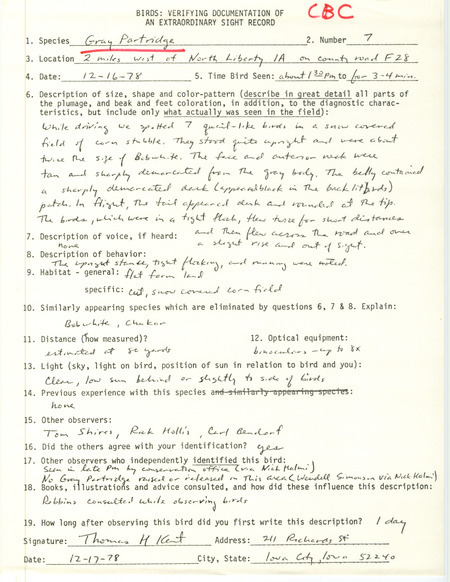 BIRDS: VERIFYING DOCUMENTATION OF
AN EXTRAORDINARY SIGHT RECORD
CBC
1. Species Gray Partridge 2. Number 7
3. Location 2 miles west of North Liberty IA on county road F28
4. Date: 12-16-78 5. Time Bird Seen: about 1:30 Pm to for 3-4 min.
6. Description of size, shape and color-pattern (describe in great detail all parts of
the plumage, and beak and feet coloration, in addition, to the diagnostic charac-
teristics, but include only what actually was seen in the field):
While driving we spotted 7 quail-like birds in a snow covered
field of corn stubble. They stood quite upright and were about
twice the size of Bobwhite. The face and anterior neck were
tan and sharply demarcated from the gray body. The belly contained
a sharply demarcated dark (appeared black in the back lit birds)
patch. In flight, the tail appeared dark and rounded at the tip.
The birds, which were in a tight flock, flew twice for short distances
and then flew across the road and over
7. Description of voice, if heard: a slight rise and out of sight.
none
8. Description of behavior:
The upright stance, tight flocking, and running were noted.
9. Habitat - general: flat farm land
specific: cut, snow covered corn field
10. Similarly appearing species which are eliminated by questions 6, 7 & 8. Explain:
Bobwhite, Chukar
11. Distance (how measured)? 12. Optical equipment:
estimated at 50 yards binoculars - up to 8x
13. Light (sky, light on bird, position of sun in relation to bird and you):
Clear, low sun behind or slightly to side of birds
14. Previous experience with this species and similarly appearing species:
none
15. Other observers:
Tom Shires, Rick Hollis, Carl Bendorf
16. Did the others agree with your identification? yes
17. Other observers who independently identified this bird:
Seen in late Pm by conservation office (via Nick Halmi)
No Gray Partridge raised or released in this area (Wendell Simonson via Nick Halmi)
18. Books, illustrations and advice consulted, and how did these influence this description:
Robbins consulted while observing birds
19. How long after observing this bird did you first write this description? 1 day
Signature: Thomas H Kent Address: 211 Richards St
Date: 12-17-78 City, State: Iowa City, Iowa 52240